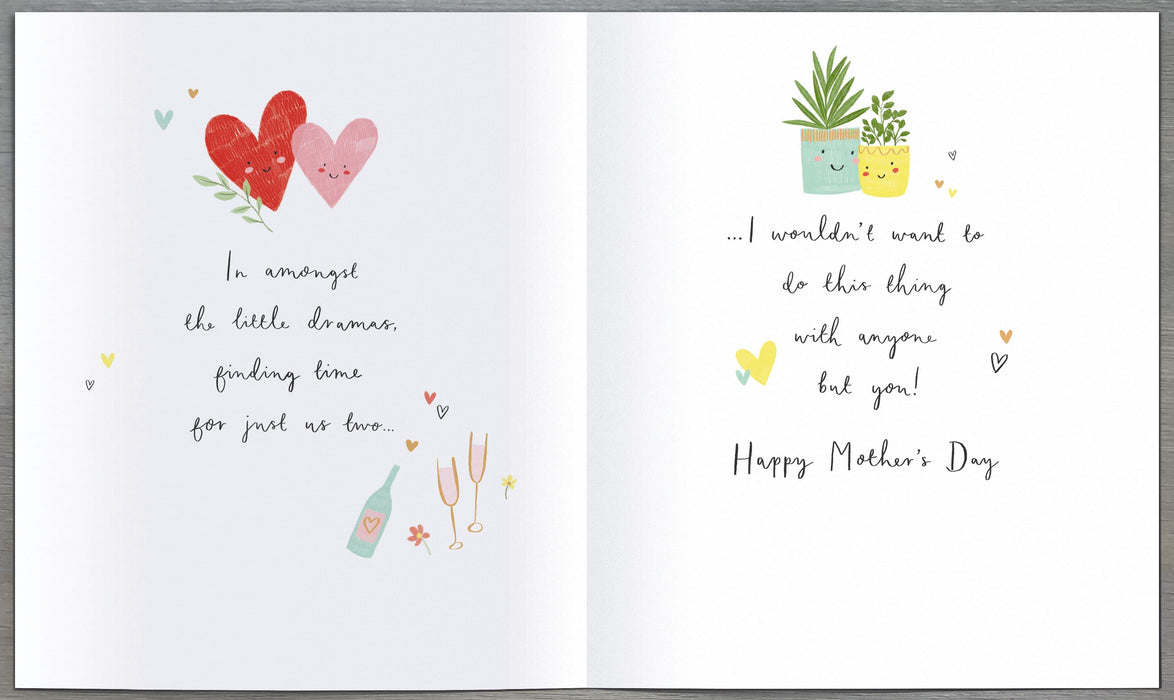 In amongst
the little dramas,
finding time
for just us two...
...I wouldn't want to
do this thing
with anyone
but you!
Happy Mother's Day